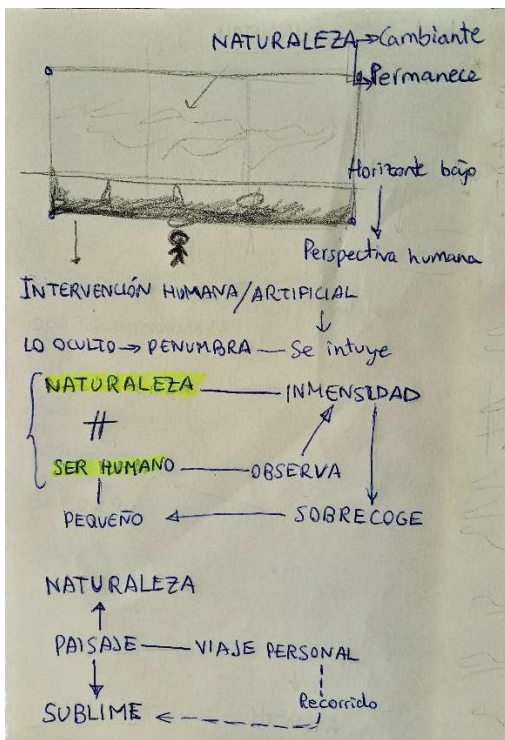 NATURALEZA → Cambiante
→ Permanece
Horizonte bajo
Perspectiva humana
INTERVENCIÓN HUMANA/ARTIFICIAL
LO OCULTO → PENUMBRA — Se intuye
NATURALEZA — INMENSIDAD
#
SER HUMANO — OBSERVA
PEQUEÑO ← SOBRECOGE
NATURALEZA
PAISAJE — VIAJE PERSONAL
Recorrido
SUBLIME